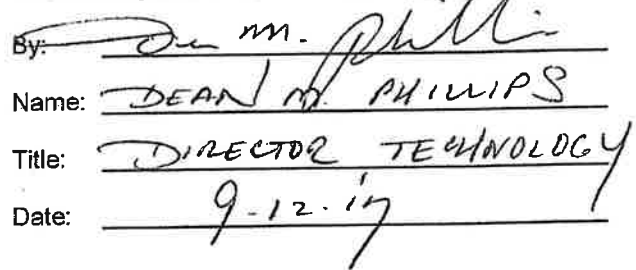 By: Dean M. Phillips
Name: DEAN M. PHILLIPS
Title: DIRECTOR TECHNOLOGY
Date: 9-12-17